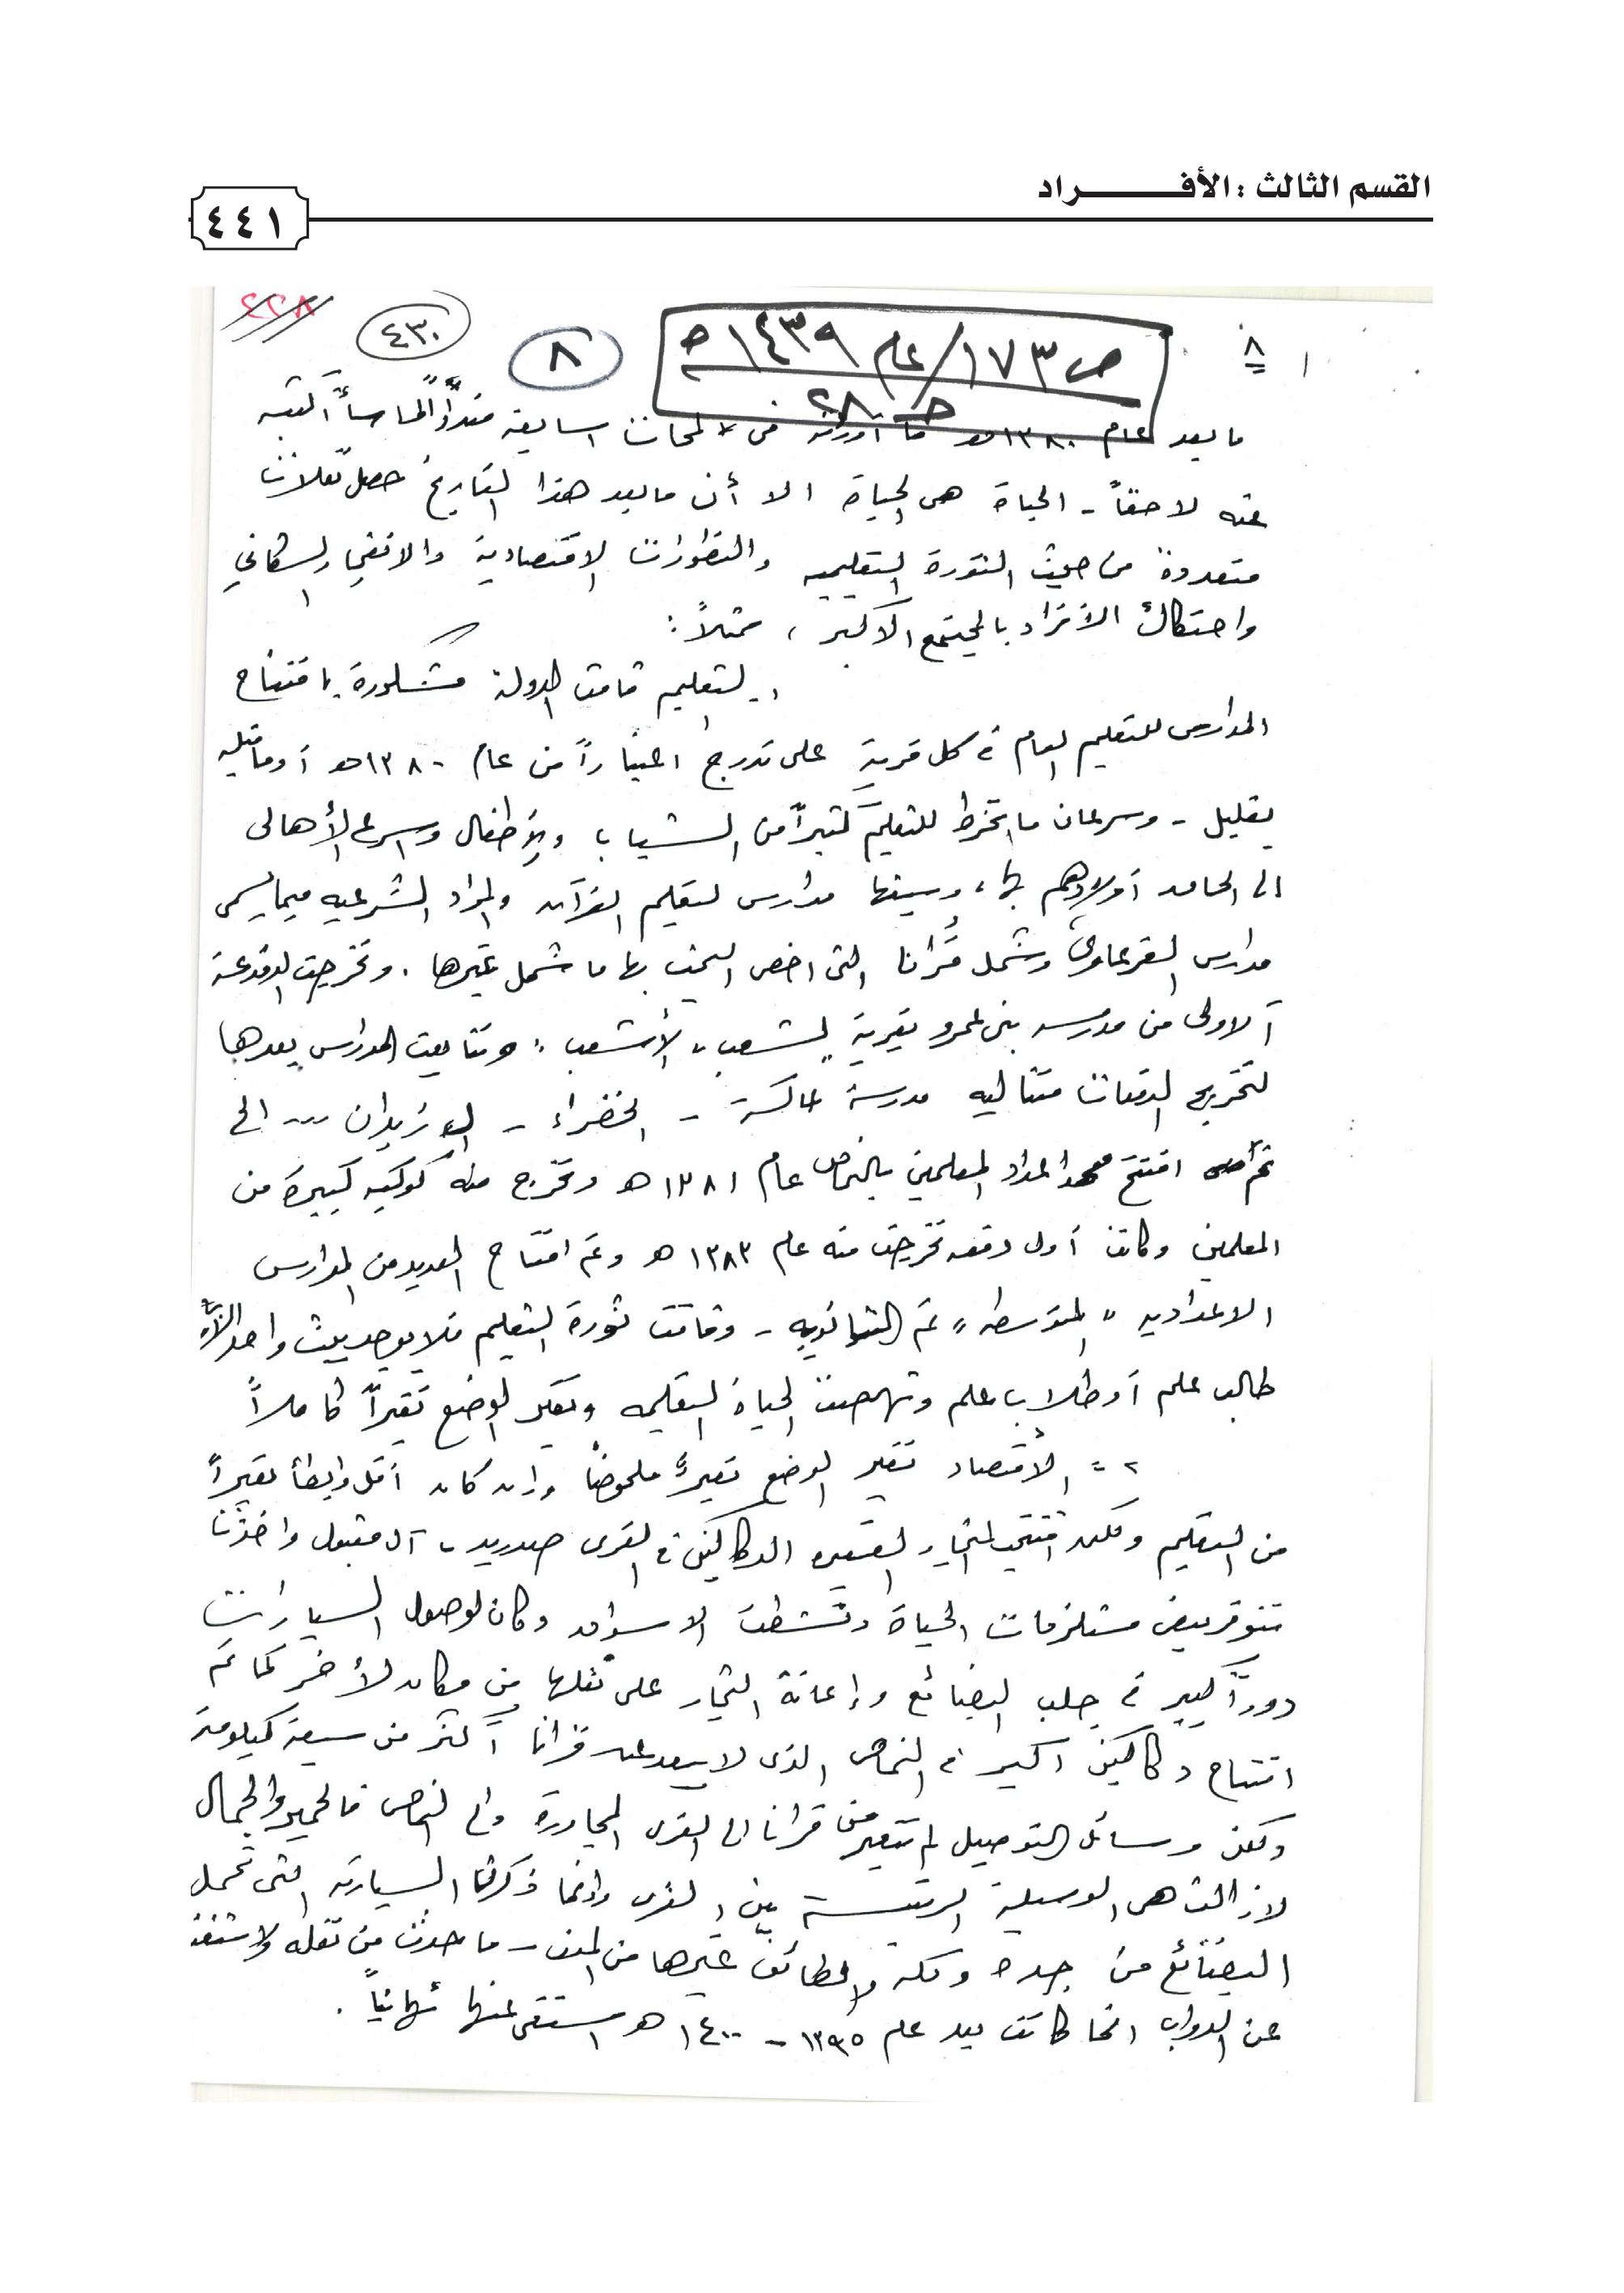 القسم الثالث : الأفـــــراد
٤٤١
٤٢٨
٤٣٠
٨
ص ١٧٣/ عام ١٤٣٩ هـ
جـ ٢٨
٨
ما بعد عام ١٣٨٠ هـ ما أوردته في لمحات السابقة لما سأكتبه
عنه لاحقاً - الحياة هي الحياة الا أن ما بعد هذا التاريخ حصل
متعددة من حيث الثورة التعليميه والتطورات الاقتصادية والانفجار السكاني
واحتكاك الأفراد بالمجتمع الأكبر ، فمثلاً :
التعليم قامت الدولة مشكورة بافتتاح
المدارس للتعليم العام في كل قرية على تدرج اعتباراً من عام ١٣٨٠ هـ أو ما قبله
بقليل - وسرعان ما انخرط للتعليم كثيراً من الشباب والأطفال وسارع الأهالى
الى الحاق أولادهم بها ، وسبقها مدارس لتعليم القرآن والمواد الشرعيه فيما يسمى
مدارس القرعاوي وشمل قرانا التى اخص البحث بها ما شمل غيرها . وتخرجت الدفعة
الاولى من مدرسة بني عمرو بقرية لشعب " الأشعب " وتتابعت المدارس بعدها
لتخريج الدفعات متتاليه مدرسة عاكسة - الخضراء - الوزيران ... الخ
ثم افتتح معهد اعداد المعلمين بالنماص عام ١٣٨١ هـ وتخرج منه كوكبه كبيرة من
المعلمين وكانت أول دفعه تخرجت منه عام ١٣٨٣ هـ وتم افتتاح العديد من المدارس
الاعداديه " المتوسطه " ثم الثانويه - وقامت ثورة التعليم فلا يوجد بيت واحد الا به
طالب علم أو طلاب علم ونهضت الحياة التعليمه وتغير الوضع تغيراً كاملاً
٢ = الأقتصاد تغير الوضع تغيراً ملحوضاً وإن كان أقل وابطأ تغيراً
من التعليم ولكن افتتح التجار الدكاكين في القرى صدريد - آل مقبول واخذت
تتوفر بعض مستلزمات الحياة ونشطت الاسواق وكان لوصول السيارات
دوراً كبير في جلب البضائع وإعانة التجار على نقلها من مكان لأخر كما تم
افتتاح دكاكين أكبر في النماص الذى لا يبعد عن قرانا أكثر من سبعة كيلومتر
ولكن وسائل التوصيل لم تتغير من قرانا الى القرى المجاورة والى النماص فالحمير والجمال
لازالت هى الوسيلة الرئيسة بين القرى وإنما ذكرت السيارة التى تحمل
البضائع من جدة ومكة والطائف غيرها من المدن - ما حدث من نقله ولاستغنا
عن الدواب انما كانت بعد عام ١٣٩٥ - ١٤٠٠ هـ استغنى عنها نهائياً .